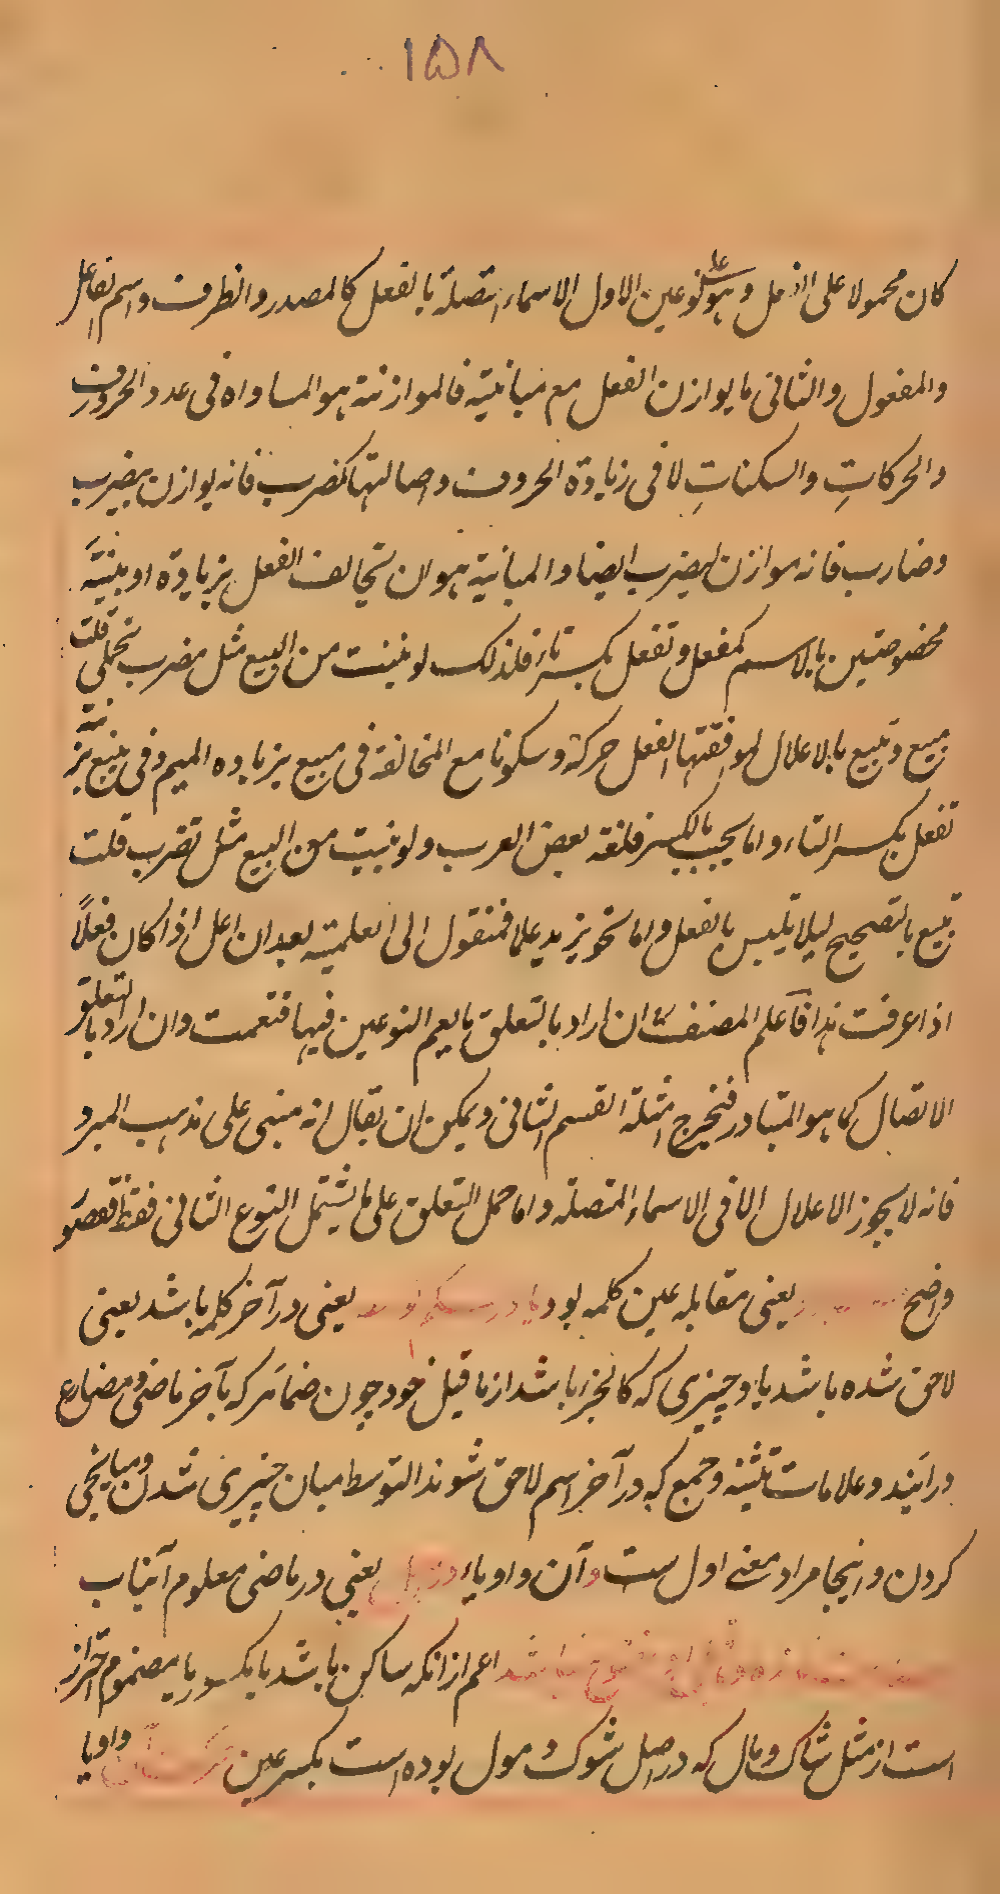 ۱۵۸
کان محمولا علی الفعل وهو علی نوعین الاول الاسماء المتصلة بالفعل کالمصدر والظرف واسم الفاعل
والمفعول والثانی ما یوازن الفعل مع مباینته فالموازنة هو المساواه فی عدد الحروف
والحرکاتِ والسکناتِ لا فی زیادة الحروف واصالتها کمضرب فانه یوازن یضرب
وضارب فانه موازن لیضرب ایضا والمباینة هو ان تخالف الفعل بزیادة او بنیة
مخصوصتین بالاسم کمفعل وتفعل بکسر تاء فلذلک لو بنیت من البیع مثل مضرب تحلی قلت
مبیع وتبیع بالاعلال لموافقتها الفعل حرکة وسکونا مع المخالفة فی مبیع بزیاده المیم وفی تبیع بزنة
تفعل بکسر التاء واما یجب بالکسر فلغة بعض العرب ولو بنیت من البیع مثل تضرب قلت
تبیع بالتصحیح لیلا یلتبس بالفعل واما نحو یزید علما فمنقول الی العلمیة بعد ان اعل اذا کان فعلاً
اذا عرفت هذا فاعلم المصنف ان اراد بالتعلق ما یعم النوعین فیها فنعمت وان اراد بالتعلق
الاتصال کما هو المتبادر فیخرج امثلة القسم الثانی ویمکن ان یقال انه مبنی علی مذهب المبرد
فانه لا یجوز الاعلال الا فی الاسماء المتصله واما حمل التعلق علی ما یشتمل النوع الثانی فقط فقصور
واضح یعنی مقابله عین کلمه بود یا در حکم یعنی در آخر کلمه باشد یعنی
لاحق شده باشد باو چیزی که کالجزء باشد از ما قبل خود چون ضمائر که بآخر ماضی ومضارع
درایند وعلامات تثنیه وجمع که در آخر اسم لاحق شوند التوسط میان چیزی شدن ومیانجی
کردن واینجا مراد معنے اول ست و آن واو یاء در یعنی در ماضی معلوم آنباب
باشد اعم از انکه ساکن باشد یا مکسور یا مضموم احتراز
است از مثل شاک ومال که در اصل شوک و مول بوده است بکسر عین واو یا